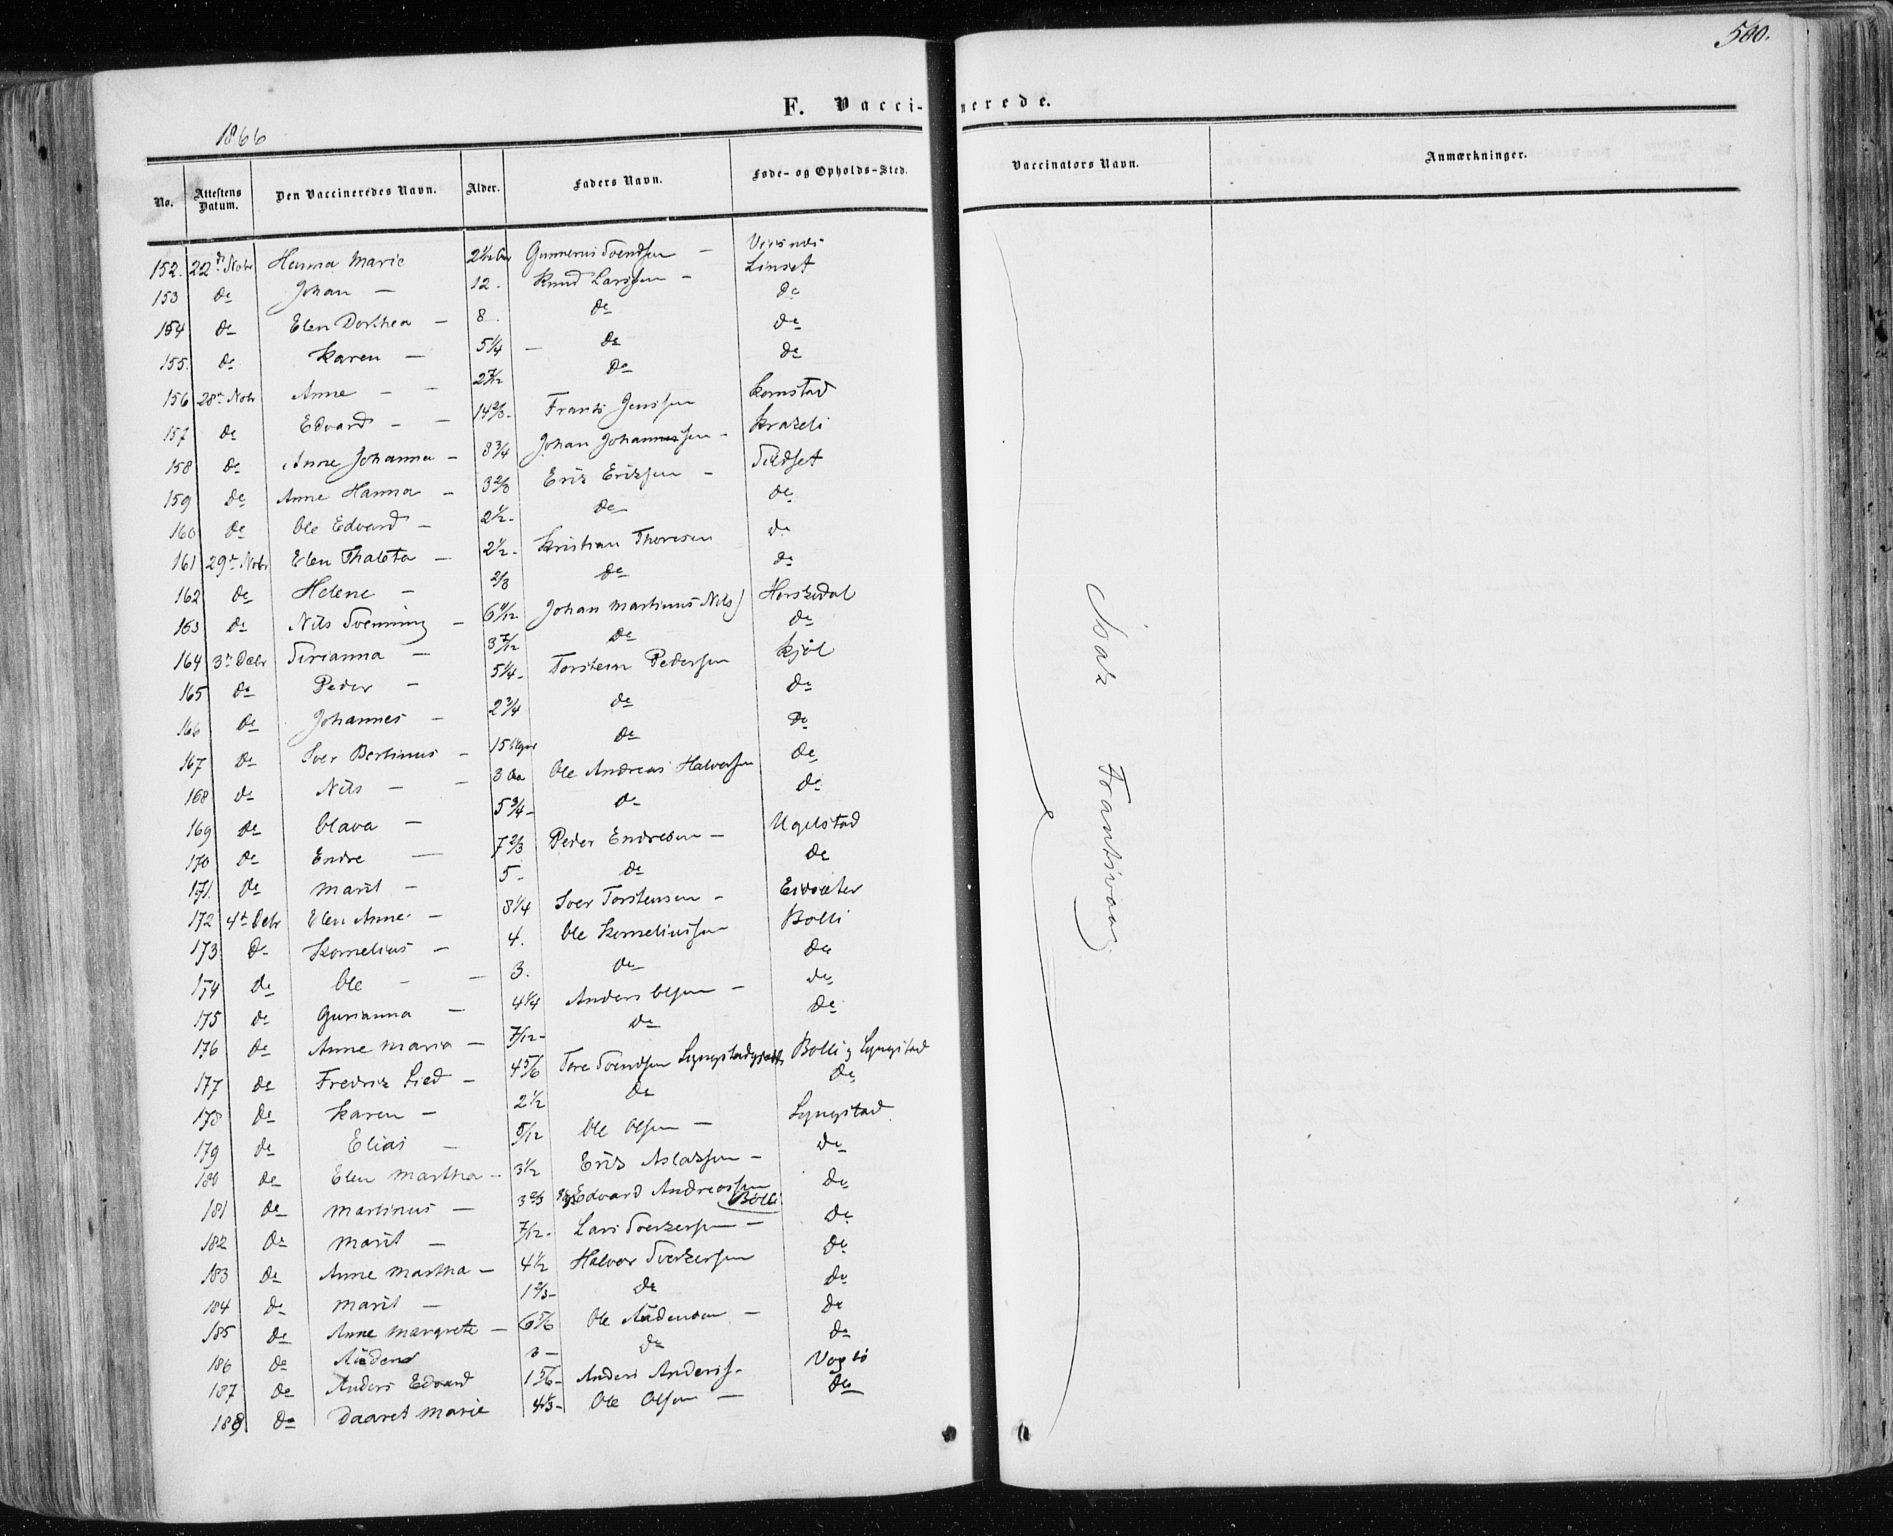 500.
F. Vaccinerede.
1866
No. Attestens Datum. Den Vaccineredes Navn. Alder. Faders Navn. Føde- og Opholds-Sted. Vaccinators Navn. Anmærkninger.
152. 22de Nobr Hanna Marie 2½ Aar Gunnerus Svendsen —
153 do Johan — 12. Knud Larssen — Linset
154 do Elen Dorthea — 8. do do
155. do Karen — 5¼ — do do
156 28de Nobr Anne — 2 7/12 do do
157 do Edvard — 14⅔ Frants Jenssen Komstad
158 do Anne Johanna — 8¾ Johan Johannessen —
159 do Anne Hanna — 3⅔ Erik Eriksen —
160 do Ole Edvard — 2½ do do
161 29de Nobr Elen Thaleta — 2½ Kristian Thoresen do
162 do Helene — ⅔ do do
163 do Nils Svenning — Johan Martinus Nils) Horskedal
164 3de Decbr Sirianna — 3 7/12 do do
165 do Peder — 5¼ Torstein Pedersen Kjøl
166 do Johannes — 2¾ do do
167 do Iver Bertinus — 15 do do
168 do Nils — 3 Aar Ole Andreas Halvorsen do
169 do Olava — 5¾ do do
170 do Endre — 7⅔ Peder Endresen — Ugelstad
171. do Marit — 5 do do
172 4de Decbr Elen Anne — 8¼ Iver Torstensen — Eidsæter
173 do Kornelius — 4. Ole Korneliussen Bolli
174 do Ole — 3. do do
175 do Gurianna — 4¼ Anders Olsen — do
176 do Anne Maria — 7/12 do do
177 do Fredrik — 4⅚ Tore Svendsen Bolli Lyngstad
178 do Karen — 2½ do do
179 do Elias — 5/12 Ole Olsen — Lyngstad
180 do Elen Martha — 3½ Erik Aslaksen — do
181 do Martinus — 3⅔ Edvard Andreassen Bolli do
182 do Marit — 7/12 Lars Sverkersen — do
183 do Anne Martha — 4½ Halvor Sverkersen do
184 do Marit — 1⅔ do do
185 do Anne Margrete — 6⅚ Ole Audensen — do
186 do Auden do do
187 do Anders Edvard 1⅚ Anders Anderss. Vaglø
188. do Daaret Marie 4⅓ Ole Olsen — do
Isak Frantsvaag